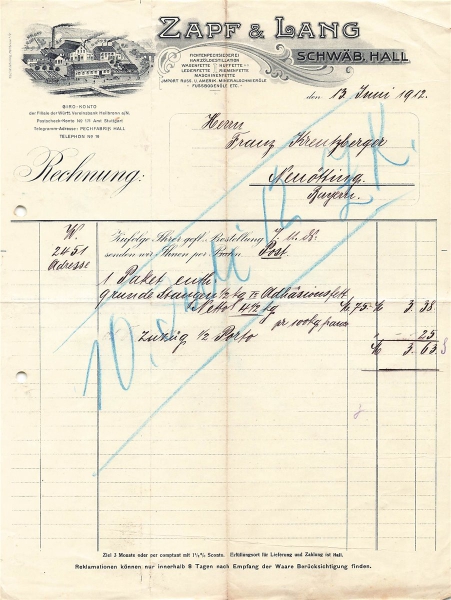 ZAPF & LANG
SCHWÄB. HALL
FICHTENPECHSIEDEREI
HARZÖLDESTILLATION
WAGENFETTE HUFFETTE
LEDERFETTE RIEMENFETTE
MASCHINENFETTE
IMPORT RUSS. U. AMERIK. MINERALSCHMIERÖLE
FUSSBODENÖLE ETC.
GIRO-KONTO
der Filiale der Württ. Vereinsbank Heilbronn a/N.
Postscheck-Konto No 121 Amt Stuttgart
Telegramm-Adresse: PECHFABRIK HALL
TELEPHON No 19
den 13. Juni 1912.
Herrn
Franz Kreutzberger
Neuötting
Bayern.
Rechnung:
W
2451
Adresse
Zufolge Ihrer gefl. Bestellung
senden wir Ihnen per Bahn Post.
1 Paket enth.
Stangen 1/2 kg Adhäsionsfett
Netto 4 1/2 kg M 75.- M 3. 38
pr 100 kg franco
1/2 Porto 25
M 3. 63
Ziel 3 Monate oder per comptant mit 1½% Sconto. Erfüllungsort für Lieferung und Zahlung ist Hall.
Reklamationen können nur innerhalb 8 Tagen nach Empfang der Waare Berücksichtigung finden.